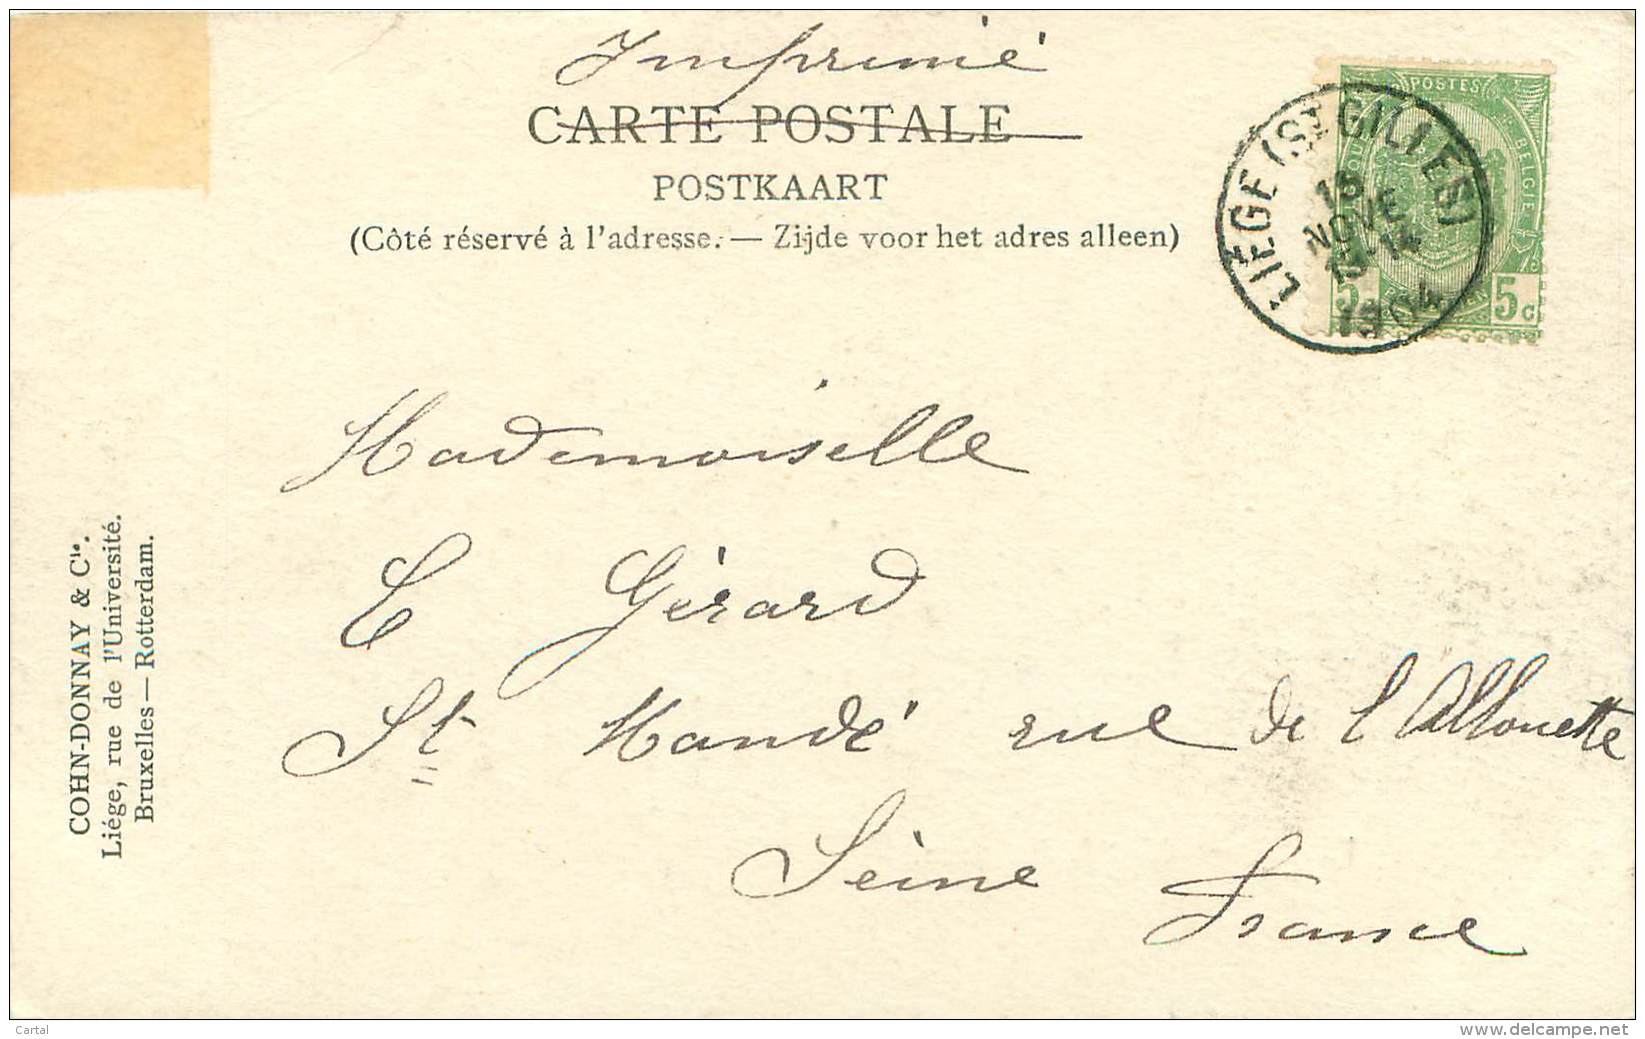 Imprimé
CARTE POSTALE
POSTKAART
(Côté réservé à l'adresse. — Zijde voor het adres alleen)
POSTES
BELGIQUE
LIÈGE (ST GILLES)
NOVE
1904
5 5c
Mademoiselle
E Gérard
St Mandé rue de l'Allouette
Seine
France
COHN-DONNAY & Cie.
Liége, rue de l'Université.
Bruxelles — Rotterdam.
Cartal
www.delcampe.net